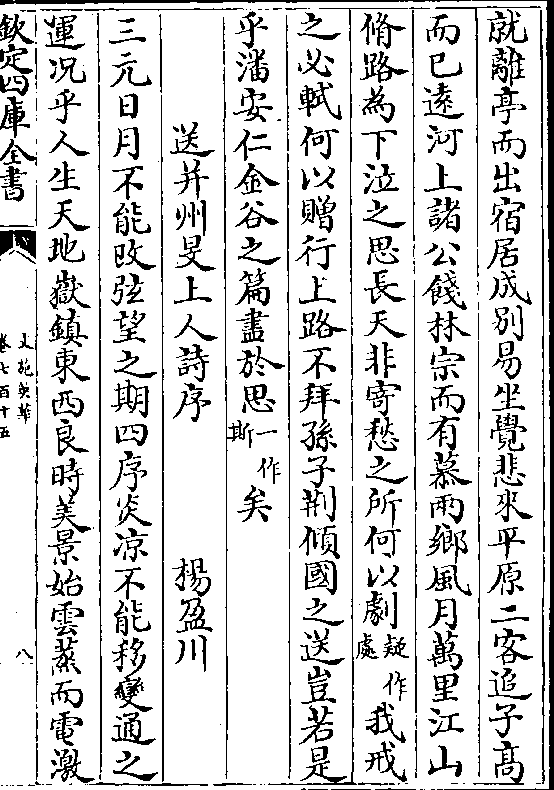 就離亭而出宿居成别易坐覺悲來平原二客追子高
而已遠河上諸公餞林宗而有慕兩鄉風月萬里江山
脩路為下泣之思長天非寄愁之所何以劇疑作處我戒
之必軾何以贈行上路不拜孫子荆傾國之送豈若是
乎潘安仁金谷之篇盡於思一作斯矣
送并州旻上人詩序 楊盈川
三元日月不能改弦望之期四序炎凉不能移變通之
運况乎人生天地嶽鎮東西良時美景始雲蒸而電激
欽定四庫全書
文苑英華
卷七百十五
八